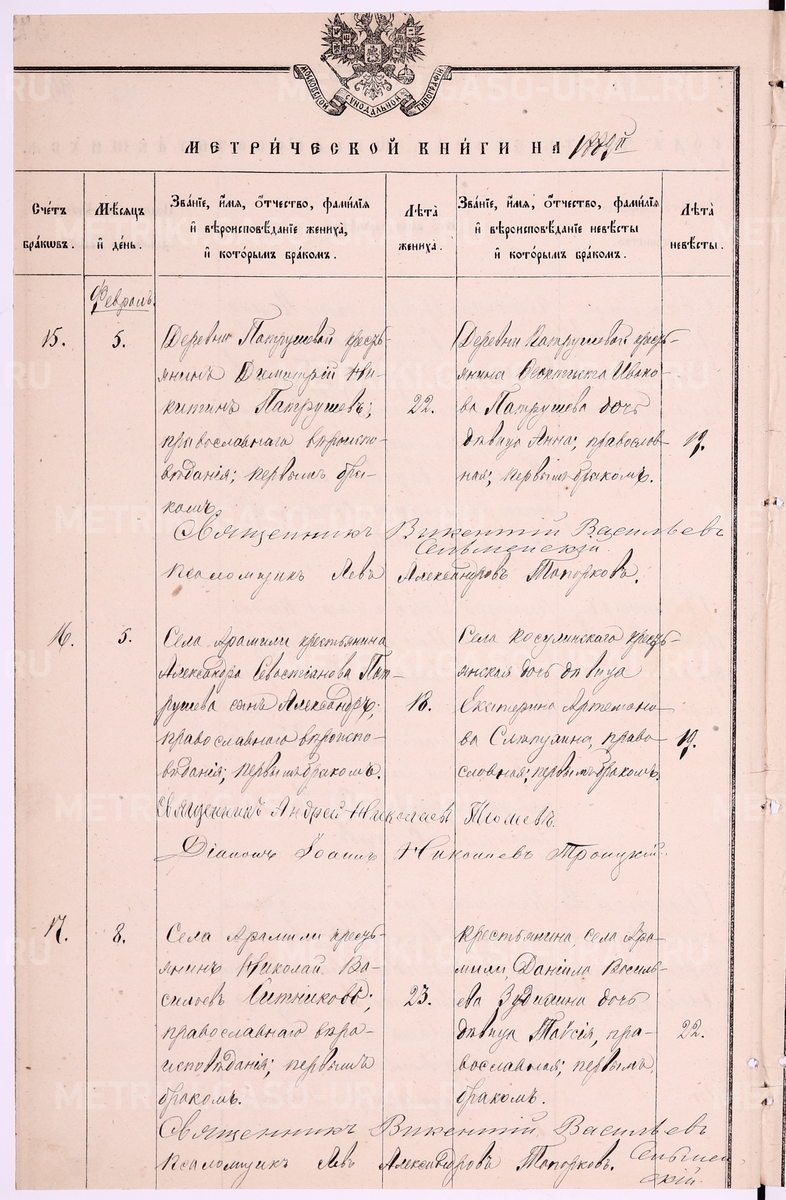 МОСКОВСКОЙ СѴНОДАЛЬНОЙ ТИПОГРАФІИ
МЕТРИ́ЧЕСКОЙ КНИ́ГИ НА 1889й
Сче́тъ бра́кѡвъ.
Мѣ́сяцъ и҆ де́нь.
Зва́нїе, и҆́мя, ѻ҆́тчество, фами́лїя и҆ вѣроисповѣ́данїе жениха̀, и҆ кото́рымъ бра́комъ.
Лѣ́та жениха̀.
Зва́нїе, и҆́мя, ѻ҆́тчество, фами́лїя и҆ вѣроисповѣ́данїе невѣ́сты и҆ кото́рымъ бра́комъ.
Лѣ́та невѣ́сты.
Февраль.
15.
5.
Деревни Патрушевой кресть-
янинъ Димитрій Ни-
китинъ Патрушевъ;
православнаго вѣроиспо-
вѣданія; первымъ бра-
комъ.
22.
Деревни Патрушевой кресть-
янина Ивано-
ва Патрушева дочь
дѣвица Анна; православ-
ная; первымъ бракомъ.
19.
Священникъ Викентій Васильевъ
Сельменскій.
Псаломщикъ Левъ Александровъ Топорковъ.
16.
5.
Села Арамили крестьянина
Александра Севастіанова Пат-
рушева сынъ Александръ;
православнаго вѣроиспо-
вѣданія; первымъ бракомъ.
18.
Села Косулинскаго кресть-
янская дочь дѣвица
Екатерина Артемоно-
ва Слѣпухина, право-
славная; первымъ бракомъ.
19.
Священникъ Андрей Николаевъ
Діаконъ Іоаннъ Николаевъ Троицкій.
17.
8.
Села Арамили кресть-
янинъ Николай Ва-
сильевъ Ситниковъ;
православнаго вѣро-
исповѣданія; первымъ
бракомъ.
23.
Крестьянина села Ара-
мили, Даніила Василь-
ева дочь
дѣвица Таисія, пра-
вославная; первымъ
бракомъ.
22.
Священникъ Викентій Васильевъ
Сельмен-
скій.
Псаломщикъ Левъ Александровъ Топорковъ.